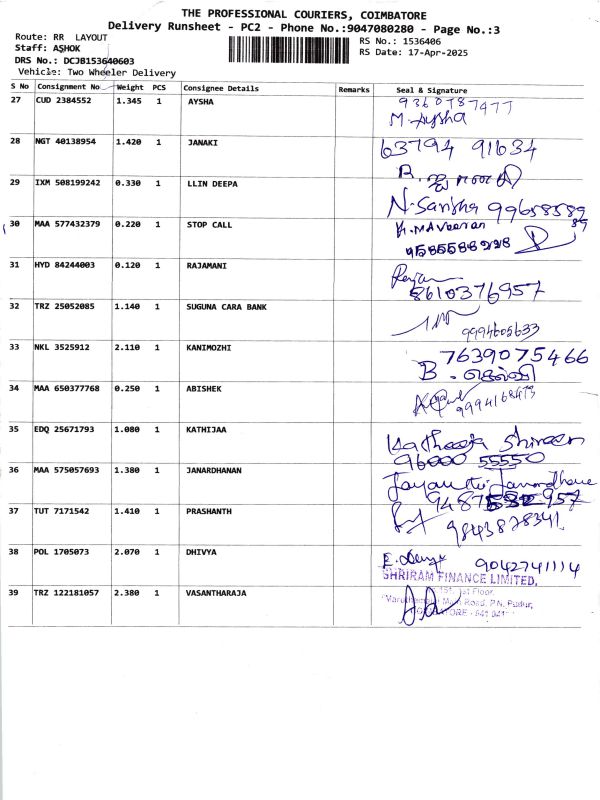 THE PROFESSIONAL COURIERS, COIMBATORE
Delivery Runsheet - PC2 - Phone No.:9047080280 - Page No.:3
Route: RR LAYOUT
Staff: ASHOK
DRS No.: DCJB153640603
Vehicle: Two Wheeler Delivery
RS No.: 1536406
RS Date: 17-Apr-2025
S No Consignment No Weight PCS Consignee Details Remarks Seal & Signature
27 CUD 2384552 1.345 1 AYSHA
M. Aysha
28 NGT 40138954 1.420 1 JANAKI 63794 91634
29 IXM 508199242 0.330 1 LLIN DEEPA
30 MAA 577432379 0.220 1 STOP CALL
31 HYD 84244003 0.120 1 RAJAMANI
8610376957
32 TRZ 25052085 1.140 1 SUGUNA CARA BANK
9994605633
33 NKL 3525912 2.110 1 KANIMOZHI 7639075466
34 MAA 650377768 0.250 1 ABISHEK
35 EDQ 25671793 1.080 1 KATHIJAA
96000 55550
36 MAA 575057693 1.380 1 JANARDHANAN
37 TUT 7171542 1.410 1 PRASHANTH
9843878341
38 POL 1705073 2.070 1 DHIVYA 9042741114
SHRIRAM FINANCE LIMITED,
39 TRZ 122181057 2.380 1 VASANTHARAJA
1st Floor,
Main Road, P.N. Pudur,